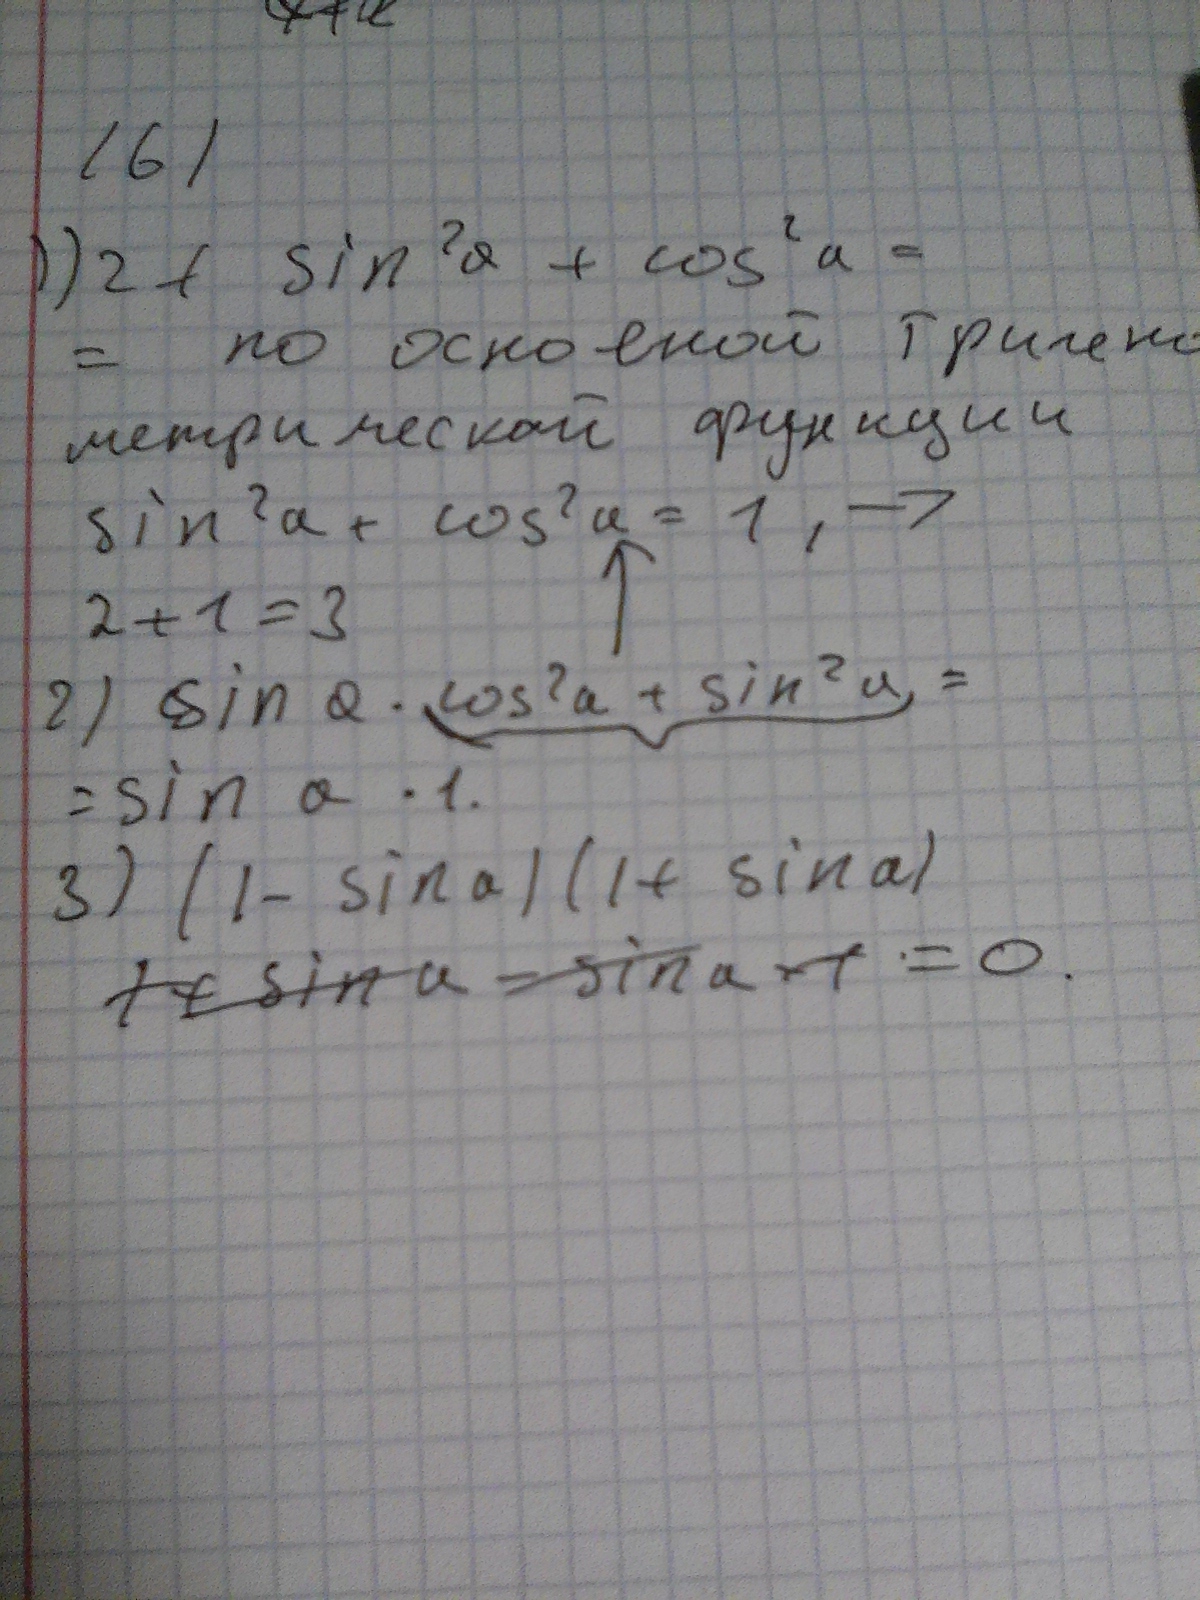 (6)
1) 2 + sin²a + cos²a =
= по основной тригоно
метрической функции
sin²a + cos²a = 1, →
2+1=3
2) sin a · cos²a + sin²a =
= sin a · 1.
3) (1 - sin a) (1 + sin a)
1 + sin a - sin a - 1 = 0.